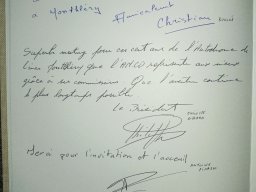 a Montlhéry
Amicalement
Christian
Superbe meeting pour ces cent ans de l'Autodrome de
Linas Montlhéry que l'ANCD représente aux mieux
grâce à ses commissaires. Que l'aventure continue
le plus longtemps possible
Le Président
Merci pour l'invitation et l'accueil